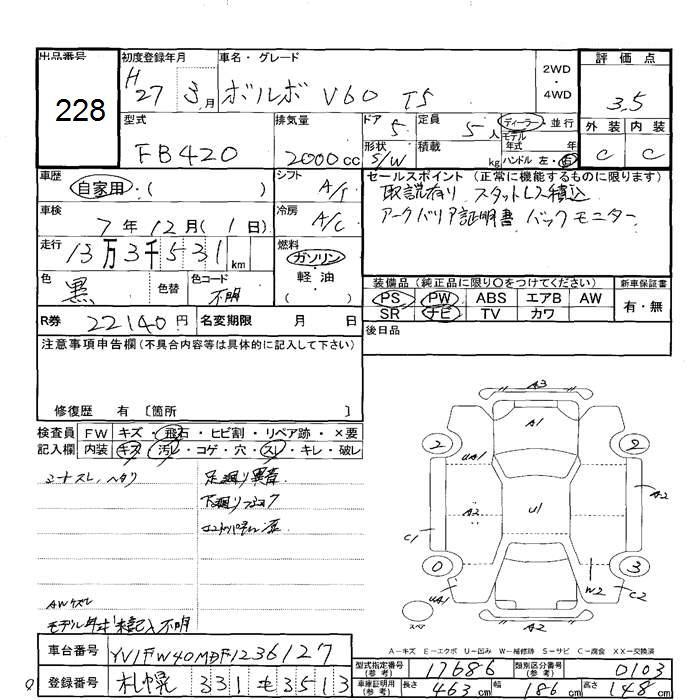 出品番号 初度登録年月 車名・グレード 評価点
228
H27 3月 ボルボ V60 T5
2WD
・
4WD
3.5
型式 排気量 ドア 定員 ディーラー・並行
FB420 2000cc 5 5人
モデル年式 年
外装 内装
形状 積載
S/W kg ハンドル 左・右
C C
車歴 シフト セールスポイント (正常に機能するものに限ります)
自家用・( ) A/T
取説有り スタッドレス積込
車検 冷房
7年12月(1日) A/C
アークバリア証明書 バックモニター
走行 燃料
13万3千531km ガソリン・
軽油・
( )
色 色替 色コード
黒 不明
装備品 (純正品に限り○をつけてください) 新車保証書
PS PW ABS エアB AW 有・無
SR ナビ TV カワ
R券 22140円 名変期限 月 日
後日品
注意事項申告欄(不具合内容等は具体的に記入して下さい)
修復歴 有〔箇所 〕
検査員 FW キズ・飛石・ヒビ割・リペア跡・×要
記入欄 内装 キズ・汚レ・コゲ・穴・スレ・キレ・破レ
シートスレ,ヘタリ
足廻り異音
下廻り
AWキズ
モデル年式未記入不明
A3
A1
2 2
UA1
A2 U1 A2
C1
0 3
UA1 W2 C2
スペア A2
A-キズ E-エクボ U-凹み W-補修跡 S-サビ C-腐食 XX-交換済
車台番号 YV1FW40MDF1236127
型式指定番号(参考) 17686 類別区分番号(参考) 0103
登録番号 札幌 331 3513
車庫証明用(参考) 長さ 463cm 幅 186cm 高さ 148cm